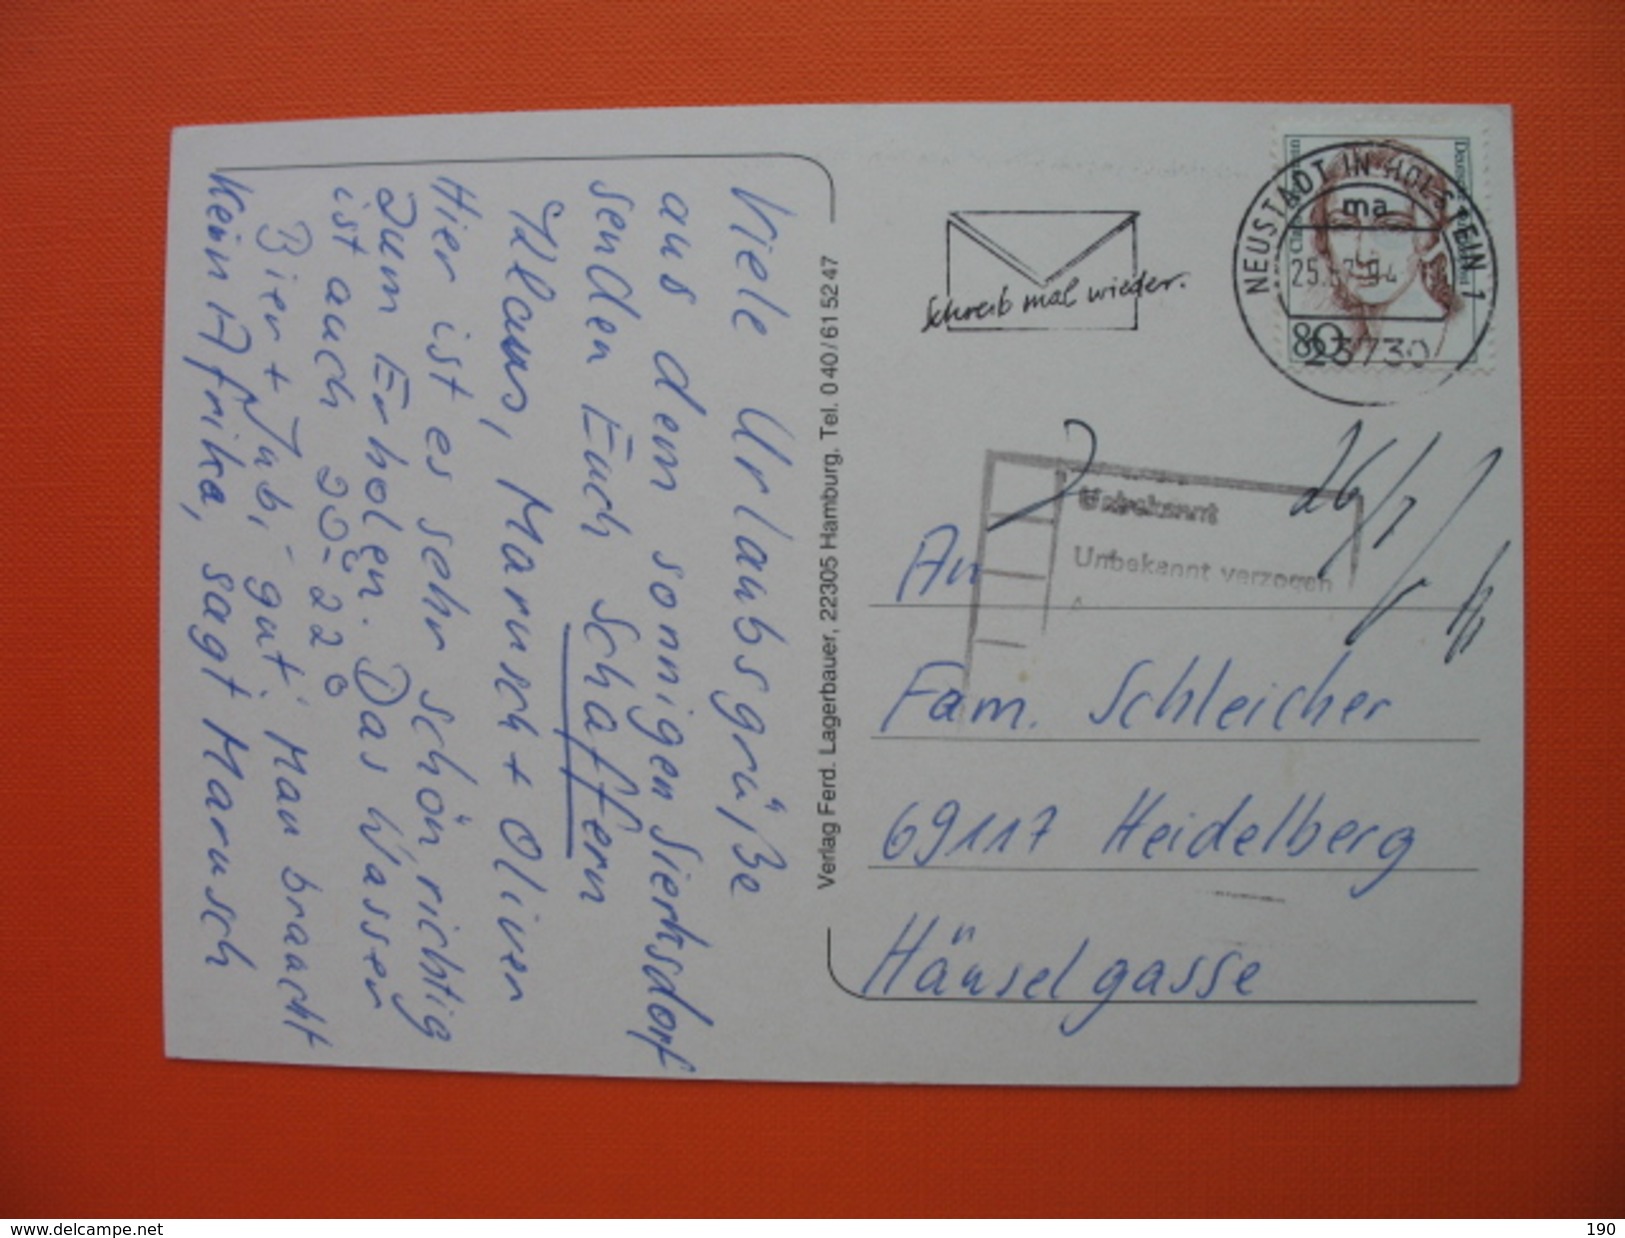 Viele Urlaubsgrüße
aus dem sonnigen Sierksdorf
senden Euch Schaffern
Klaus, Marusch + Oliver
Hier ist es sehr schön richtig
zum Erholen. Das Wasser
ist auch 20-22°
Bier + Jubi, gut. Man braacht
Kein Afrika, sagt Marusch
Verlag Ferd. Lagerbauer, 22305 Hamburg, Tel. 0 40/61 52 47
Schreib mal wieder.
NEUSTADT IN HOLSTEIN 1
ma
25. 94
23730
80
Unbekannt
Unbekannt verzogen
26/7
An
Fam. Schleicher
69117 Heidelberg
Hänselgasse
www.delcampe.net
190